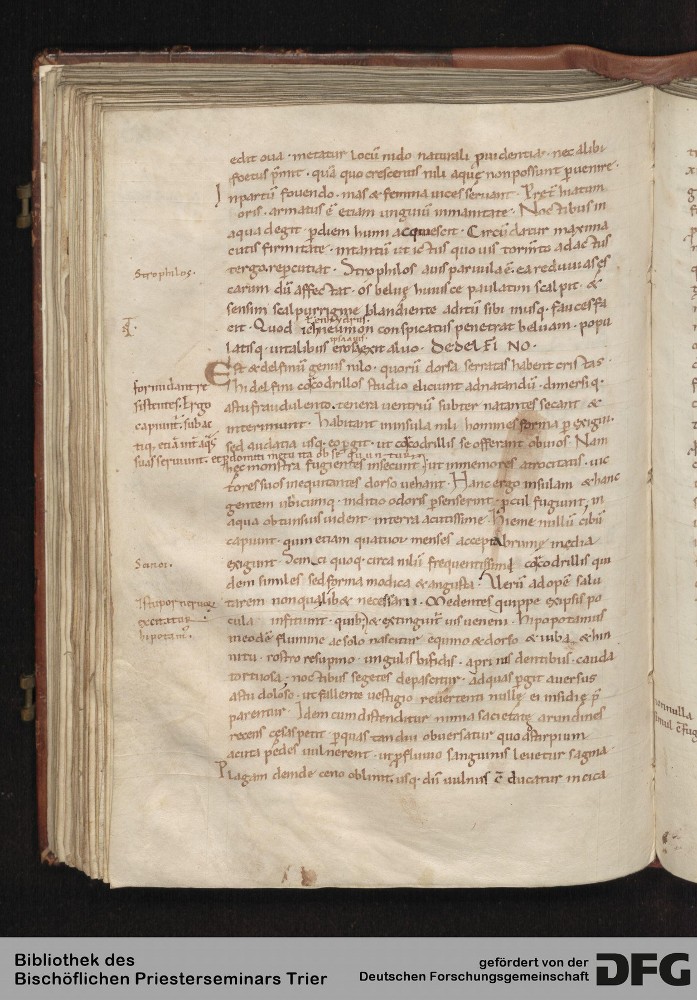 edit oua · metatur locū nido naturali ꝓuidentia · nec alibi
foetus p̄mit · quā quo crescentis nili aquę non possunt ꝑuenire ·
In partū fouendo · mas & femina uices seruant · Pręt̄ hiatum
oris · armatus ē etiam unguiū inmanitate · Noctibus in
aqua degit · ꝑ diem humi acquiescit · Circūdatur maxima
cutis firmitate · intantū ut ictus quouis torm̄to adactus
tergo reꝑcutiat · Strophilos auis paruula ē · ea reduuias es
carum dū affectat · os beluę huiusce paulatim scalpit · &
sensim scalpurrigine blandiente aditū sibi inusq · fauces fa
cit · Quod ichneumon conspicatus penetrat beluam · popu
latisq · uitalibus eroso exit aluo · De delfino ·
Est & delfinū genus nilo · quorū dorsa serratas habent cristas ·
hi delfini cocodrillos studio eliciunt adnatandū · dimersiq ·
astu fraudulento · tenera uentriū subter natantes secant · &
interimunt · habitant in insula nili homines forma ꝑexigui ·
sed audatia usq · eo ꝑgit · ut cocodrillis se offerant obuios · Nam
hęc monstra fugientes insecunt̄ ut inmemores atrocitatis · uic
tores suos inequitantes dorso uehant · Hanc ergo insulam & hanc
gentem ubicumq · inditio odoris ꝑsenserint · ꝓcul fugiunt · in
aqua obtunsius uident · in terra acutissime · Hieme nullū cibū
capiunt · quin etiam quatuor menses a cepta brume media
exigunt · Scinci quoq · circa nilū frequentissimi cocodrillis qui
dem similes sed forma modica & angusta · Uerū ad opē salu
tarem non qualib& necessarii · Medentes quippe ex ipsis po
cula inficiunt · quib; & extinguit̄ uis ueneni · hipopotamus
in eodē flumine ac solo nascitur · equino & dorso & iuba · & hin
nitu · rostro resupino · ungulis bifidis · apri nis dentibus · cauda
tortuosa · noctibus segetes depascitur · ad quas ꝑgit auersus
astu doloso · ut fallente uestigio reuertenti nullę ei insidię p̄
parentur · Idem cum distenditur nimia sacietate · arundines
recens cęsas petit · ꝑ quas tandiu obuersatur quo astirpium
acuta pedes uulnerent · ut ꝓfluuio sanguinis leuetur sagina ·
Plagam deinde ceno oblinit · usq · dū uulnus ē ducatur in cica
Strophilos ·
formidant re
sistentes · Ergo
capiunt̄ · subac
tiq · etiā int̄ aq̄s
suas seruiunt · et ꝑdomiti metu ita obseq̄untur ·
Scincι ·
Hipotam̄ ·
Bibliothek des
Bischöflichen Priesterseminars Trier
gefördert von der
Deutschen Forschungsgemeinschaft
DFG